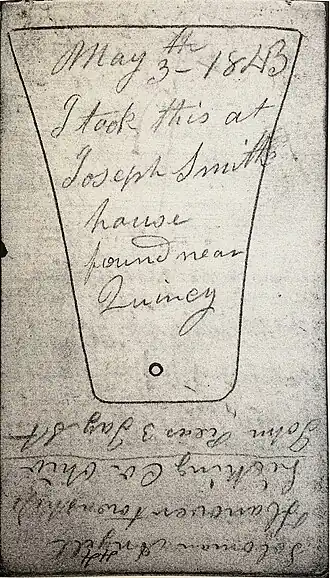 May 3th - 1843
I took this at
Joseph Smiths
house
found near
Quincy
Soloman Angell
Hanover township
Licking Co. Ohio
John